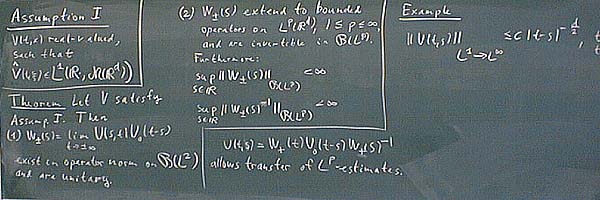 Assumption I
V(t,x) real-valued,
such that
V̂(t,ξ) ∈ L¹(ℝ, M(ℝᵈ))
Theorem Let V satisfy
Assump. I. Then
(1) W±(s) = lim U(s,t) U₀(t-s)
t→±∞
exist in operator norm on B(L²)
and are unitary.
(2) W±(s) extend to bounded
operators on Lᵖ(ℝᵈ), 1 ≤ p ≤ ∞,
and are invertible in B(Lᵖ).
Furthermore:
sup ‖W±(s)‖ B(Lᵖ) < ∞
s∈ℝ
sup ‖W±(s)⁻¹‖ B(Lᵖ) < ∞
s∈ℝ
U(t,s) = W±(t) U₀(t-s) W±(s)⁻¹
allows transfer of Lᵖ-estimates.
Example
‖U(t,s)‖ L¹→L∞ ≤ c|t-s|^(-d/2),